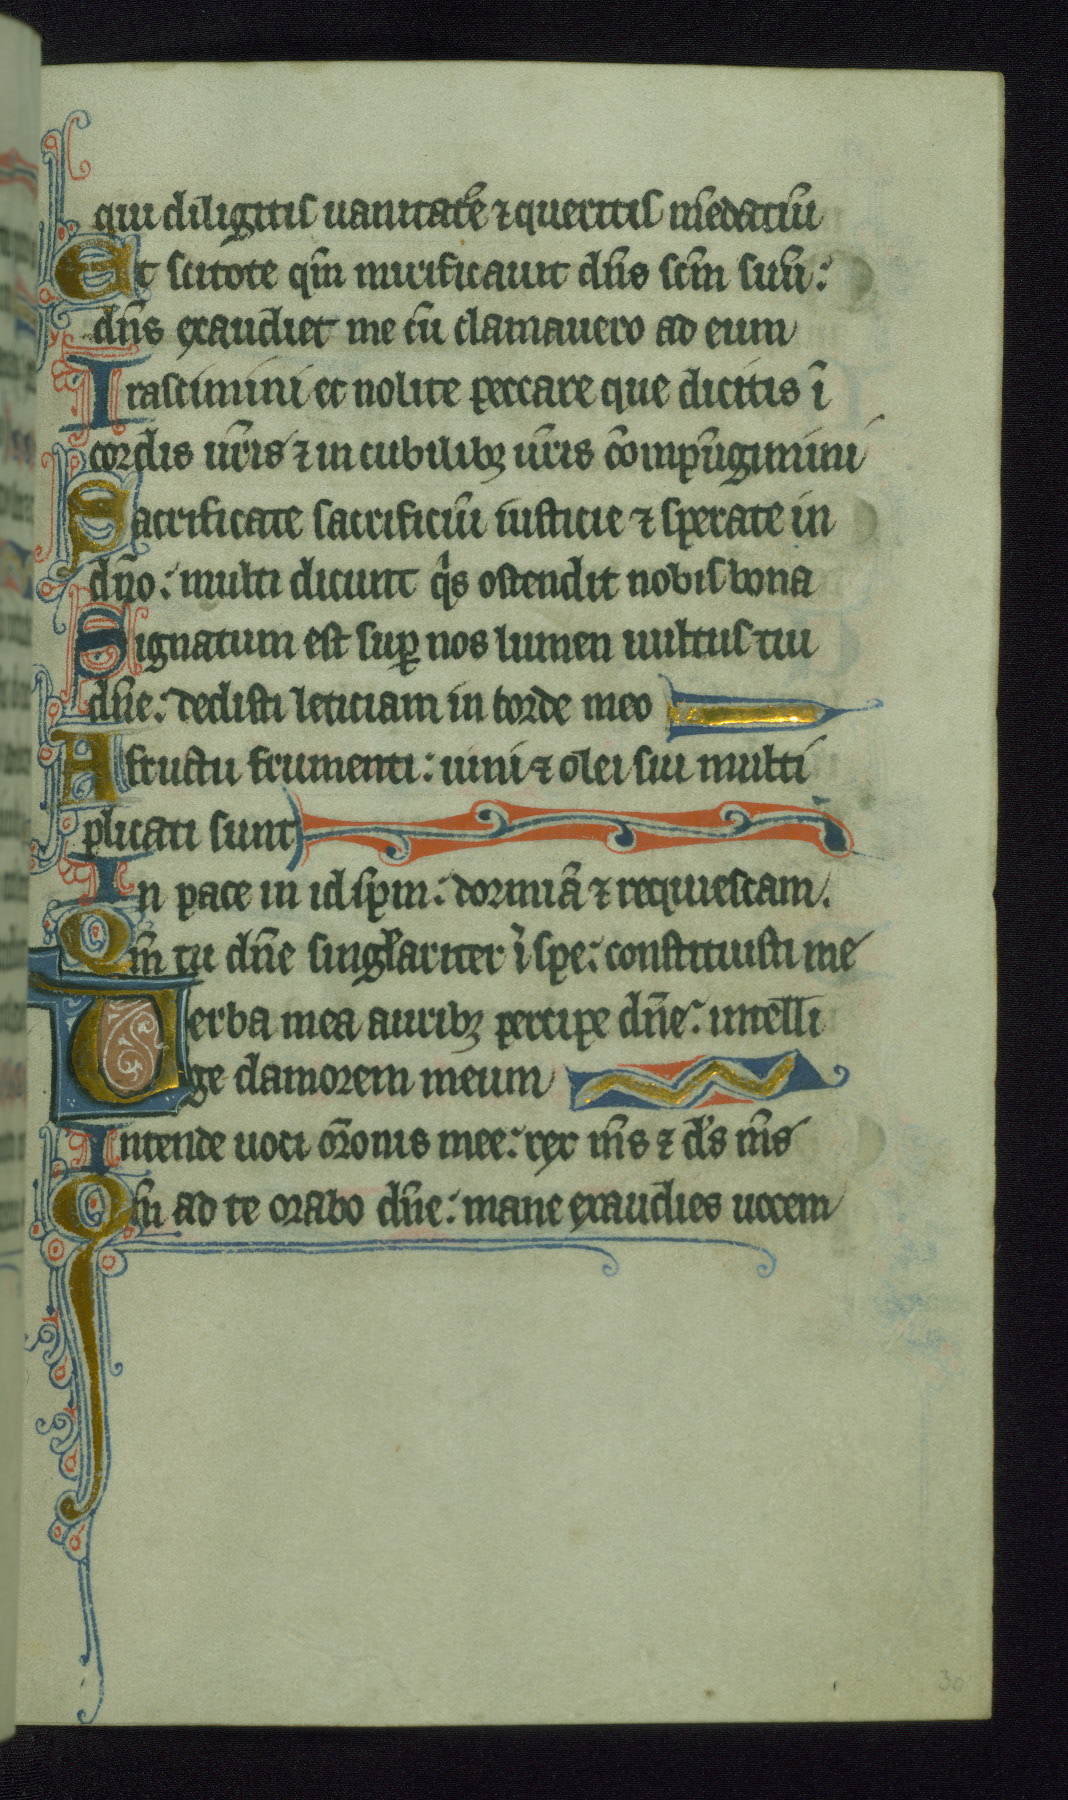 qui diligitis uanitatē ⁊ queritis mēdaciū
Et scitote qm̄ mirificauit dn̄s scm̄ suū:
dn̄s exaudiet me cū clamauero ad eum
Irascimini et nolite peccare que dicitis ī
cordis ur̄is ⁊ in cubilibꝫ ur̄is cōmpūgimini
Sacrificate sacrificiū iusticie ⁊ sperate in
dn̄o: multi dicunt qͥs ostendit nobis bona
Signatum est suꝑ nos lumen uultus tui
dn̄e: dedisti leticiam in corde meo
A fructu frumenti: uini ⁊ olei sui multi
plicati sunt
In pace in idip̄m: dormiā ⁊ requiescam.
Qm̄ tu dn̄e singl̄ariter ī spe: constituisti me
Uerba mea auribꝫ percipe dn̄e: intelli
ge clamorem meum
Intende uoci or̄onis mee: rex m̄s ⁊ d̄s m̄s
Qm̄ ad te orabo dn̄e: mane exaudies uocem
30